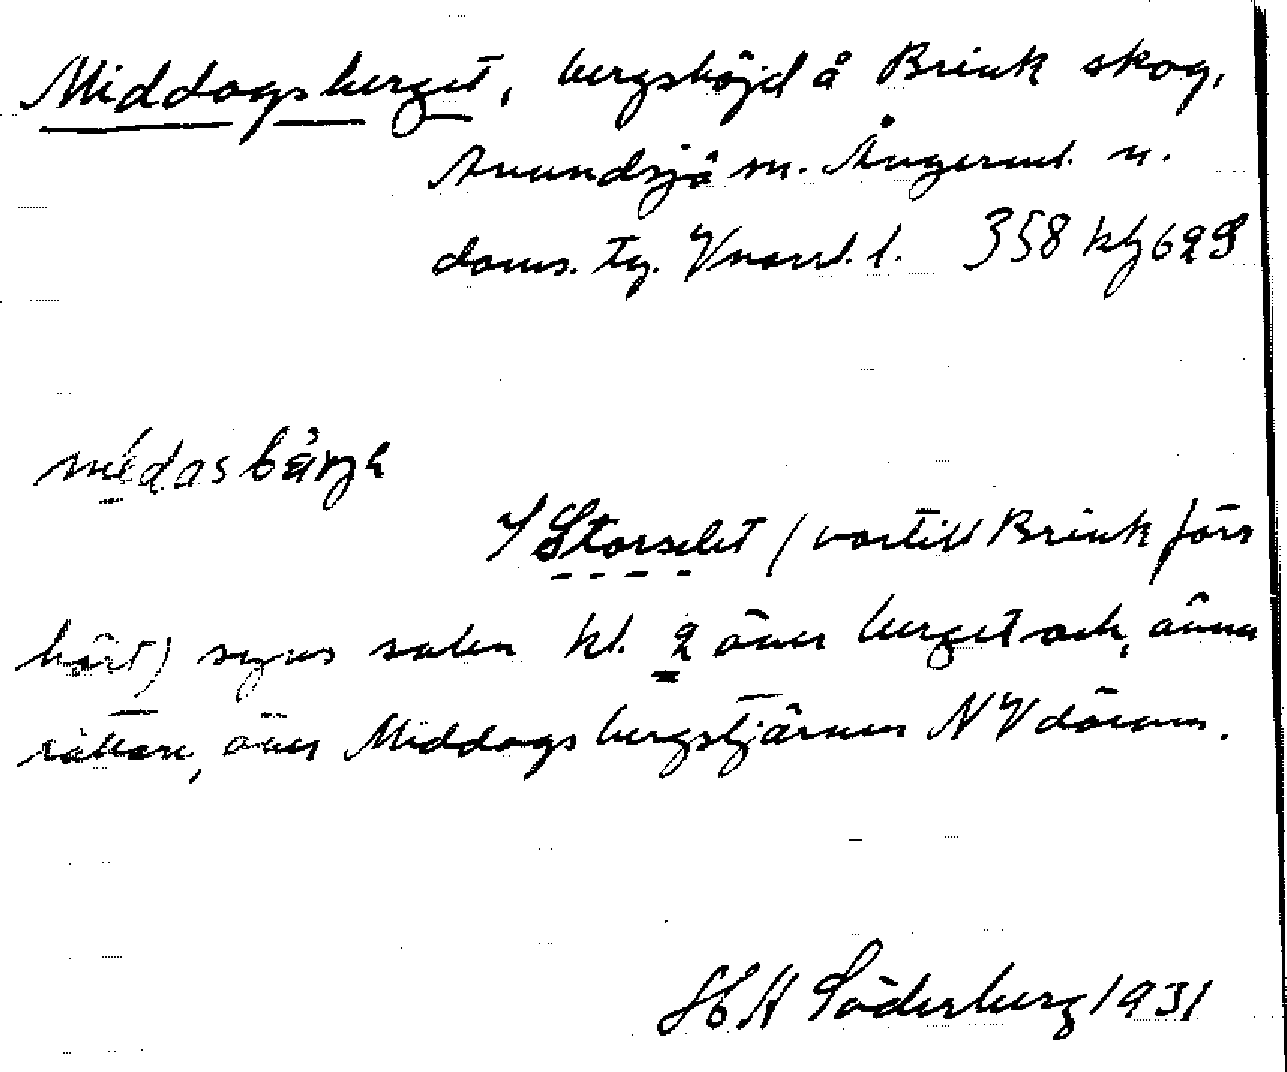 Middagsberget, bergshöjd å Brink skog,
Anundsjö sn. Ångerml. n.
doms. tg. Vnorrl. l. 358 khz 629
médasbärjə
I Storselet (vartill Brink förr
hört) synes solen kl. 2 över berget och, ännu
rättare, över Middagsbergstjärnen NV därom.
H A Söderberg 1931